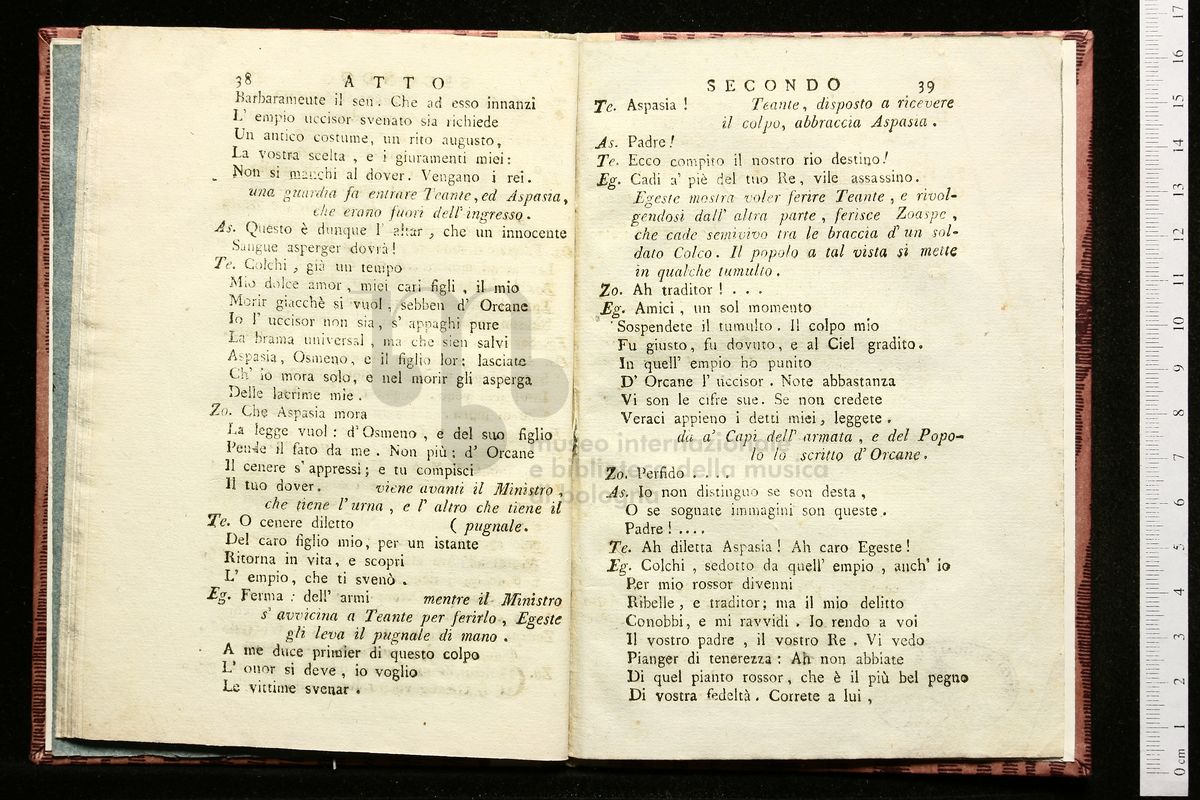 38 ATTO
Barbaramente il sen. Che ad esso innanzi
L' empio uccisor svenato sia richiede
Un antico costume, un rito augusto,
La vostra scelta, e i giuramenti miei:
Non si manchi al dover. Vengano i rei.
una guardia fa entrare Teante, ed Aspasia,
che erano fuori dell' ingresso.
As. Questo è dunque l' altar, che un innocente
Sangue asperger dovrà!
Te. Colchi, già un tempo
Mio dolce amor, miei cari figli, il mio
Morir giacchè si vuol, sebben d' Orcane
Io l' uccisor non sia, s' appaghi pure
La brama universal, ma che sien salvi
Aspasia, Osmeno, e il figlio lor; lasciate
Ch' io mora solo, e nel morir gli asperga
Delle lacrime mie.
Zo. Che Aspasia mora
La legge vuol: d'Osmeno, e del suo figlio
Pende il fato da me. Non più: d' Orcane
Il cenere s' appressi; e tu compisci
Il tuo dover. viene avanti il Ministro,
che tiene l' urna, e l' altro che tiene il
Te. O cenere diletto ( pugnale.
Del caro figlio mio, per un istante
Ritorna in vita, e scopri
L' empio, che ti svenò.
Eg. Ferma: dell' armi mentre il Ministro
s' avvicina a Teante per ferirlo, Egeste
gli leva il pugnale di mano.
A me duce primier di questo colpo
L' onor si deve, io voglio
Le vittime svenar.
SECONDO 39
Te. Aspasia! Teante, disposto a ricevere
il colpo, abbraccia Aspasia.
As. Padre!
Te. Ecco compito il nostro rio destino!
Eg. Cadi a' piè del tuo Re, vile assassino.
Egeste mostra voler ferire Teante, e rivol-
gendosi dall' altra parte, ferisce Zoaspe,
che cade semivivo tra le braccia d' un sol-
dato Colco. Il popolo a tal vista si mette
in qualche tumulto.
Zo. Ah traditor! . . .
Eg. Amici, un sol momento
Sospendete il tumulto. Il colpo mio
Fu giusto, fu dovuto, e al Ciel gradito.
In quell' empio ho punito
D' Orcane l' uccisor. Note abbastanza
Vi son le cifre sue. Se non credete
Veraci appieno i detti miei, leggete.
da a' Capi dell' armata, e del Popo-
lo lo scritto d' Orcane.
Zo. Perfido . . . .
As. Io non distinguo se son desta,
O se sognate immagini son queste.
Padre! ....
Te. Ah diletta Aspasia! Ah caro Egeste!
Eg. Colchi, sedotto da quell' empio, anch' io
Per mio rossor divenni
Ribelle, e traditor; ma il mio delitto
Conobbi, e mi ravvidi. Io rendo a voi
Il vostro padre, il vostro Re. Vi vedo
Pianger di tenerezza: Ah non abbiate
Di quel pianto rossor, che è il più bel pegno
Di vostra fedeltà. Correte a lui,
museo internazionale
e biblioteca della musica
di bologna
0 cm 1 2 3 4 5 6 7 8 9 10 11 12 13 14 15 16 17